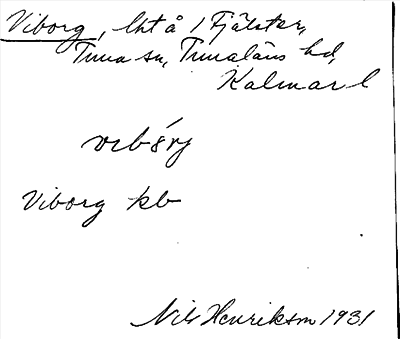 Viborg, lht å 1 Fjälster,
Tuna sn, Tunaläns hd,
Kalmar l
Viborg kb
Nils Henrikson 1931